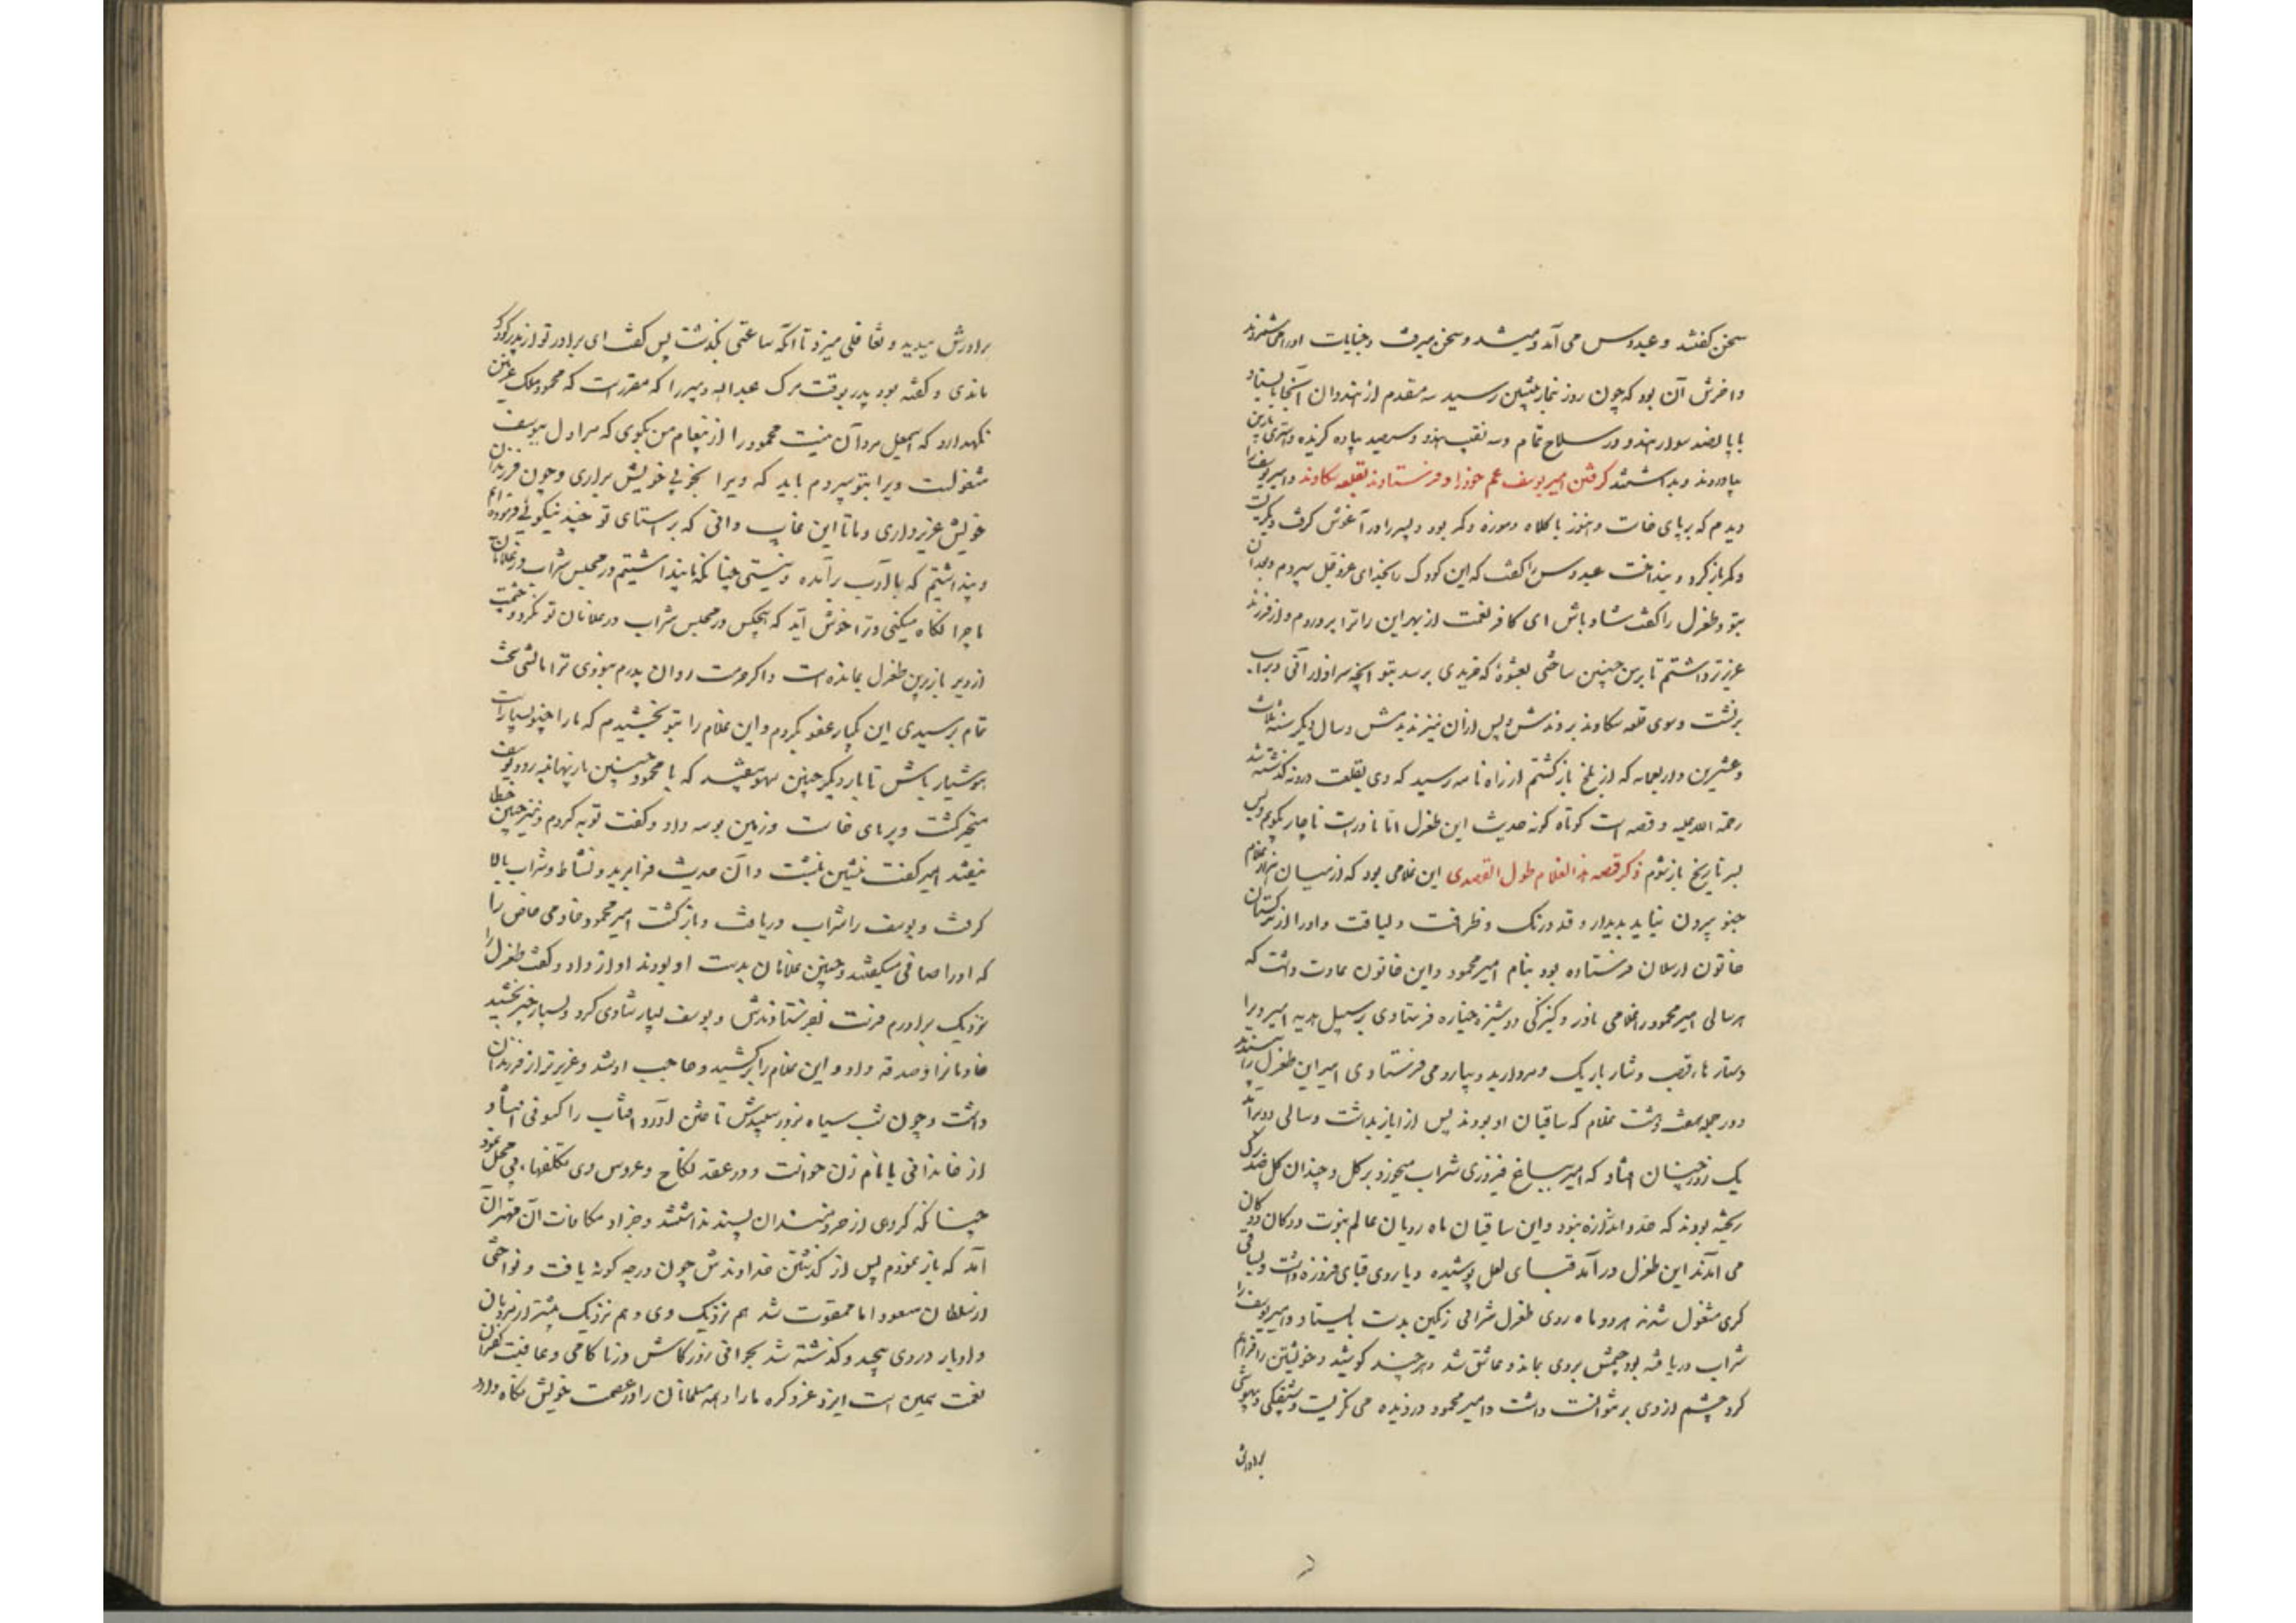 سخن گفتند و عبدوس می آمد و میشد و سخن میرفت و جنایات اورا می شمردند
و اخرش آن بود که چون روز بنماز پیشین رسید سه مقدم از هندوان آنجا بایستاد
با پانصد سوار هندو در سلاح تمام و سه نقیب هندو و سیصد پیاده گزیده و استری با زین
بیاوردند و بداشتند گرفتن امیر یوسف عم خود را و فرستادند بقلعه سکاوند و امیر یوسف را
دیدم که بر پای خاست و هنوز با کلاه و موزه و کمر بود و پسر را در آغوش گرفت و بگریست
و کمر باز کرد و بینداخت عبدوس را گفت که این کودک را بخدای عز و جل سپردم و بعد آن
بتو و طغرل را گفت شاد باش ای کافر نعمت از بهر این را ترا پروردم و از فرزند
عزیزتر داشتم تا بر من چنین ساختی بعشوهٔ که خریدی برسد بتو آنچه سزاوار آنی و بر اسب
برنشست و سوی قلعه سکاوند بردندش و پس ازان نیز ندیدمش و سال دیگر سنه ثلاث
و عشرین و اربعمایه که از بلخ باز گشتم از راه نامه رسید که وی بقلعت درونه گذشته شد
رحمة الله علیه و قصه است کوتاه گونه حدیث این طغرل اما نادرست ناچار بگویم و پس
بسر تاریخ باز شوم ذکر قصه هذا الغلام طول القصدی این غلامی بود که از میان هزار غلام
چنو بیرون نیاید بدیدار و قد و رنگ و ظرافت و لیاقت و اورا از ترکستان
خاتون ارسلان فرستاده بود بنام امیر محمود و این خاتون عادت داشت که
هر سالی امیر محمود را غلامی نادر و کنیزکی دوشیزه خیاره فرستادی بر سبیل هدیه امیر ویرا
دستار ها قصب و شار باریک و مروارید و دیبا رومی فرستادی امیر این طغرل را بپسندید
و در جمله هفت هشت غلام که ساقیان او بودند پس از ایاز بداشت و سالی دو برآمد
یک روز چنان افتاد که امیر بباغ فیروزی شراب میخورد بر گل و چندان گل صدبرگ
ریخته بودند که حد و اندازه نبود و این ساقیان ماه رویان عالم بنوبت دوگان دوگان
می آمدند این طغرل در آمد قبای لعل پوشیده و یار وی قبای فیروزه داشت و بساقی
گری مشغول شدند هر دو ماه روی طغرل شرابی رنگین بدست بایستاد و امیر یوسف را
شراب دریافته بود چشمش بروی بماند و عاشق شد و هر چند کوشید و خویشتن را فراهم
کرد چشم از وی بر نتوانست داشت و امیر محمود دزدیده می نگریست و شیفتگی و بیهوشی
برادرش
برادرش میدید و تغافلی میزد تا آنکه ساعتی بگذشت پس گفت ای برادر تو از پدر کودک
ماندی و گفته بود پدر بوقت مرگ عبدالله دبیر را که مقررست که محمود ملک غزنین
نگهدارد که اسمعیل مرد آن نیست محمود را از پیغام من بگوی که مرا دل بیوسف
مشغولست ویرا بتو سپردم باید که ویرا بخوی خویش براری و چون فرزندان
خویش عزیز داری و ما تا این غایت دانی که براستای تو چند نیکوئی فرموده ایم
و پنداشتیم که با ادب برآمده و نیستی چنانکه ما پنداشتیم در مجلس شراب در غلامان
ما چرا نگاه میکنی و ترا خوش آید که هیچکس در مجلس شراب در غلامان تو نگرد و چشمت
از دیر باز برین طغرل بمانده است و اگر حرمت روان پدرم نبودی ترا مالشی سخت
تمام برسیدی این یکبار عفو کردم و این غلام را بتو بخشیدم که مارا چنو بسیارست
هوشیار باش تا بار دیگر چنین سهو نیفتد که با محمود چنین بازیها نه رود یوسف
متحیر گشت و بر پای خاست و زمین بوسه داد و گفت توبه کردم و نیز چنین خطا
نیفتد امیر گفت بنشین بنشست و آن حدیث فرا برید و نشاط و شراب بالا
گرفت و یوسف را شراب دریافت و باز گشت امیر محمود خادمی خاص را
که اورا صافی میگفتند و چنین غلامان بدست او بودند اواز داد و گفت طغرل را
نزدیک برادرم فرست بفرستادندش و یوسف بسیار شادی کرد و بسیار چیز بخشید
خادمانرا و صدقه داد و این غلام را برکشید و حاجب او شد و عزیزتر از فرزندان
داشت و چون شب سیاه بروز سپیدش تاختن آورد و آفتاب را کسوفی افتاد
از خاندانی با نام زن خواست و در عقد نکاح و عروس وی تکلفهای بی محل نمود
چنانکه گروهی از خردمندان پسند نداشتند و جزا و مکافات آن مهتر آن
آمد که باز نمودم پس از گذشتن خداوندش چون درجه گونه یافت و نواختی
از سلطان مسعود اما ممقوت شد هم نزدیک وی و هم نزدیک بیشتر از مردمان
و ادبار در وی پیچید و گذشته شد بجوانی روزگارش در ناکامی و عاقبت کفران
نعمت همین است ایزد عز ذکره مارا و همه مسلمانان را در عصمت خویش نگاه دارد